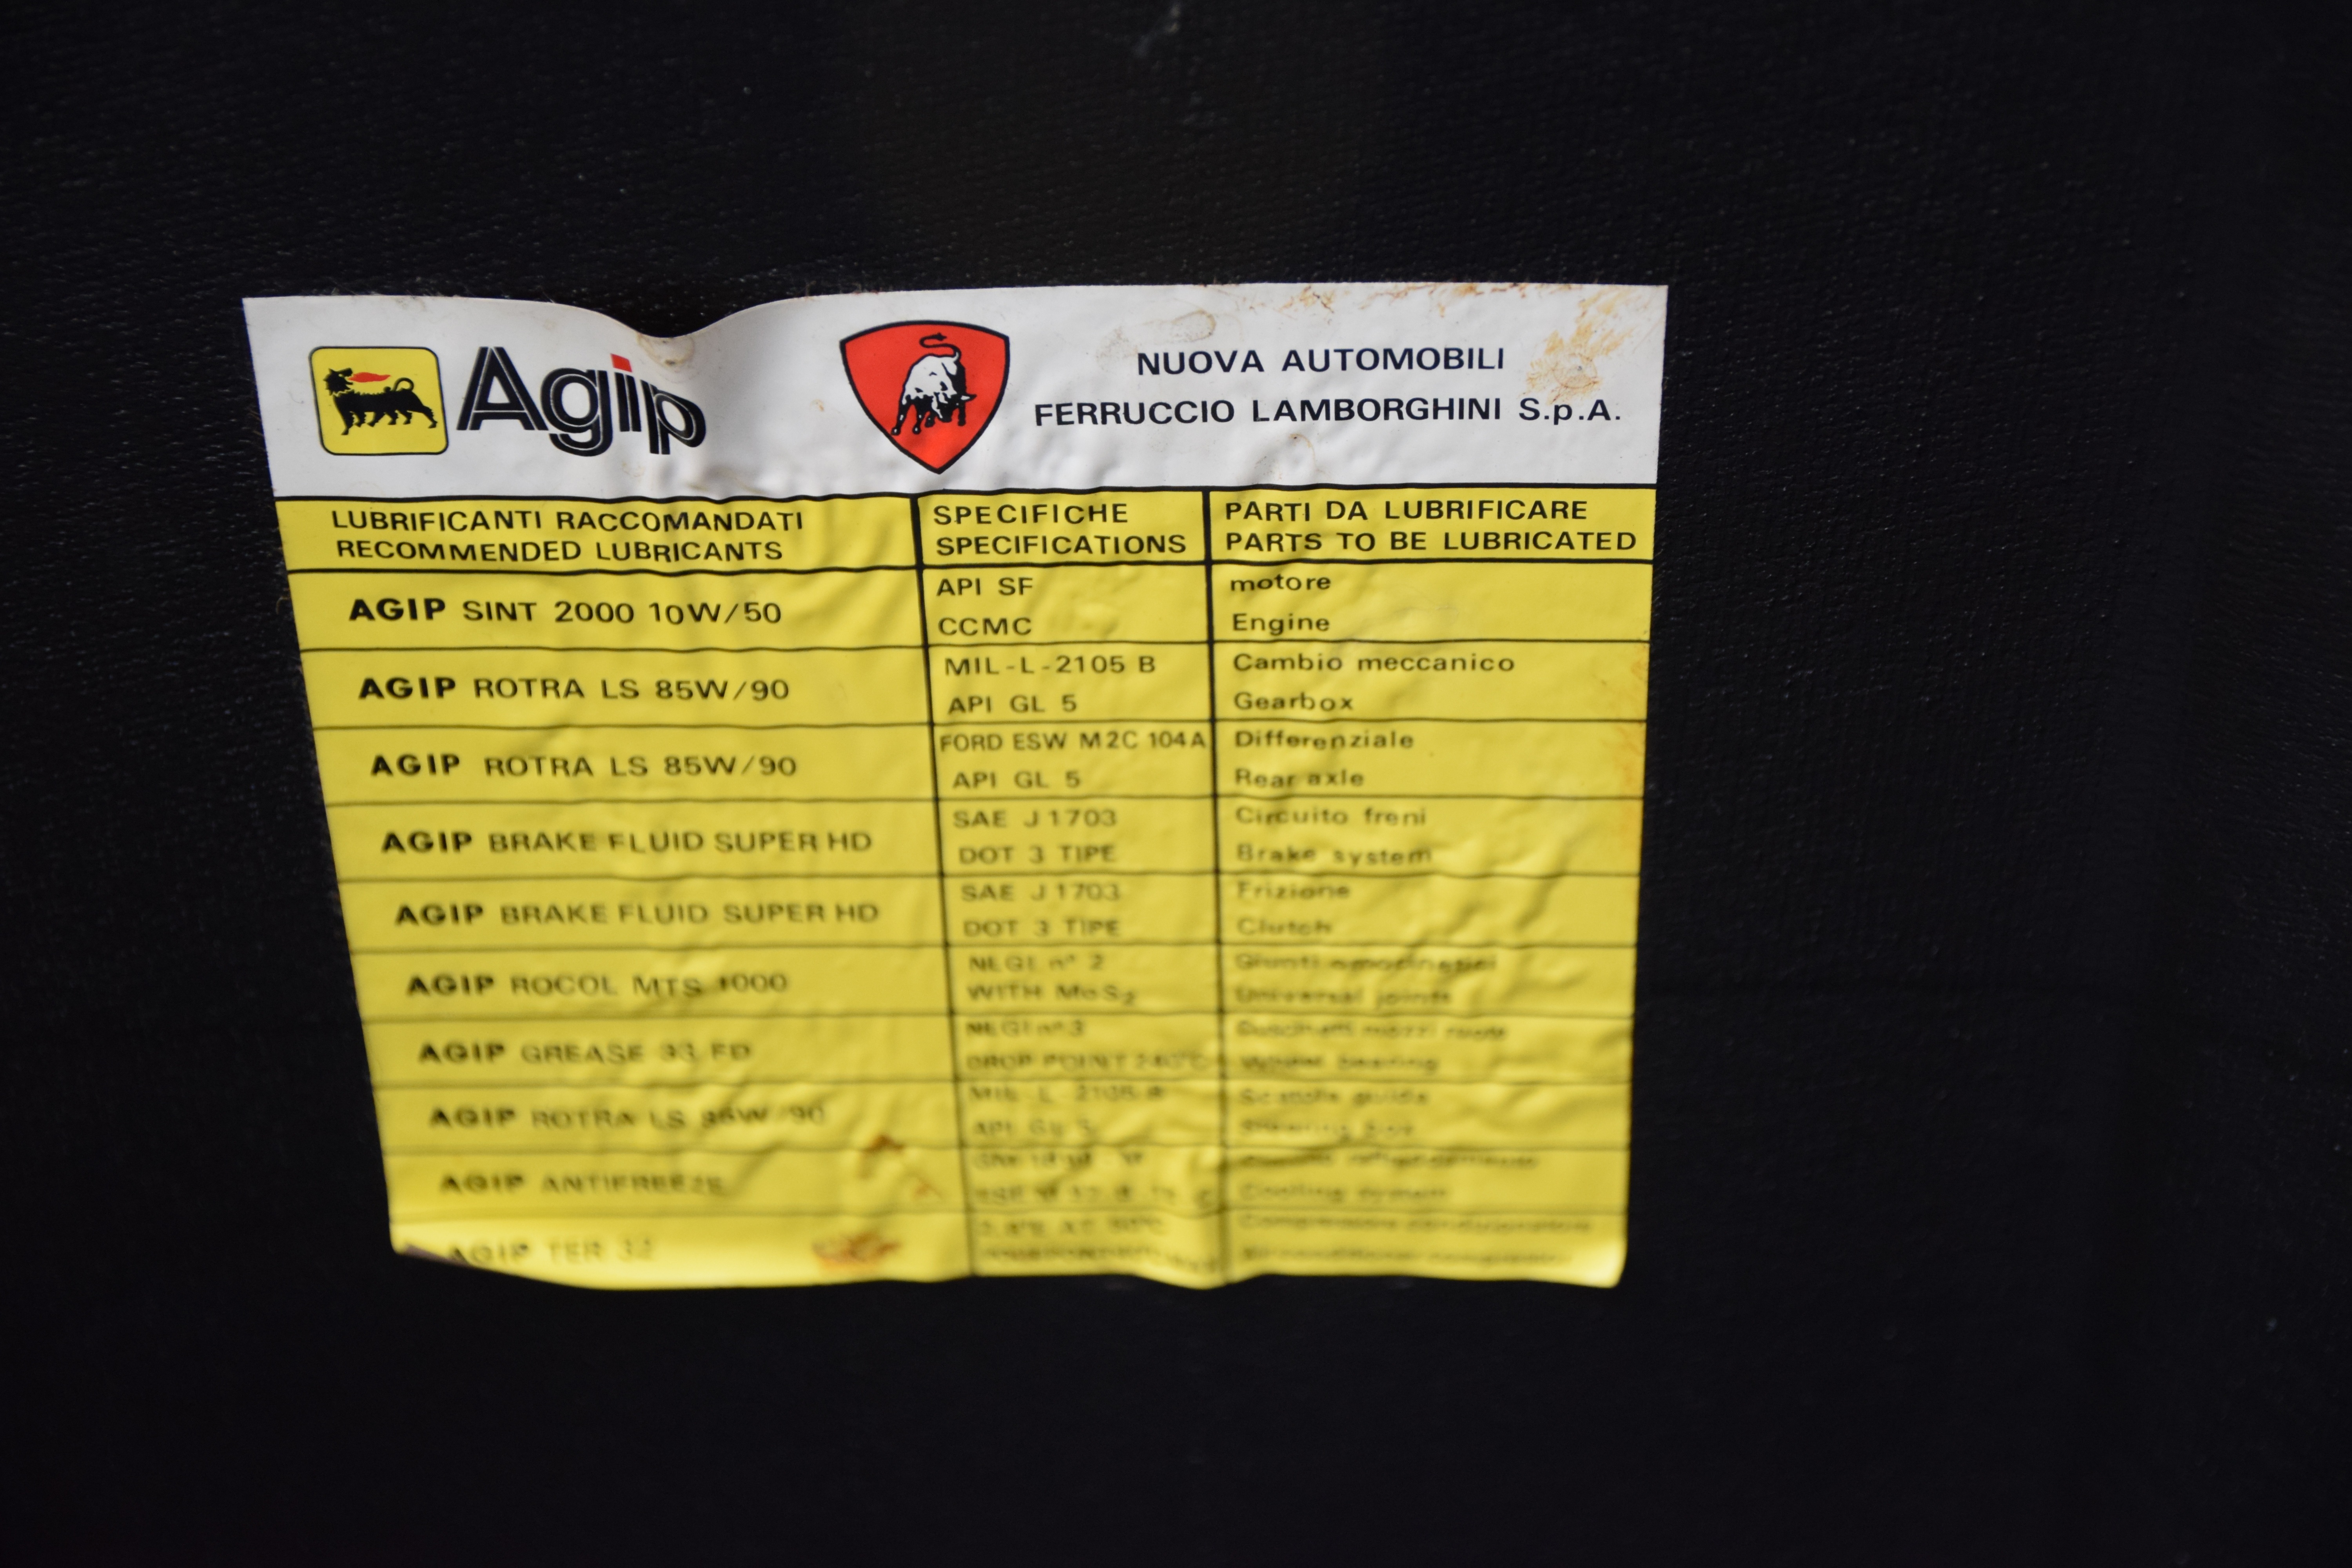 Agip
NUOVA AUTOMOBILI
FERRUCCIO LAMBORGHINI S.p.A.
LUBRIFICANTI RACCOMANDATI
RECOMMENDED LUBRICANTS
SPECIFICHE
SPECIFICATIONS
PARTI DA LUBRIFICARE
PARTS TO BE LUBRICATED
AGIP SINT 2000 10W/50
API SF
CCMC
motore
Engine
AGIP ROTRA LS 85W/90
MIL-L-2105 B
API GL 5
Cambio meccanico
Gearbox
AGIP ROTRA LS 85W/90
FORD ESW M2C 104A
API GL 5
Differenziale
Rear axle
AGIP BRAKE FLUID SUPER HD
SAE J1703
DOT 3 TIPE
Circuito freni
Brake system
AGIP BRAKE FLUID SUPER HD
SAE J1703
DOT 3 TIPE
Frizione
Clutch
AGIP ROCOL MTS 1000
NLGI n° 2
WITH MoS2
Giunti omocinetici
Universal joints
AGIP GREASE 33 FD
NLGI n° 3
DROP POINT
Cuscinetti mozzi ruote
Wheel bearing
AGIP ROTRA LS 85W/90
MIL-L-2105 B
API GL 5
Scatola guida
Steering box
AGIP ANTIFREEZE
Cooling system
AGIP TER 32